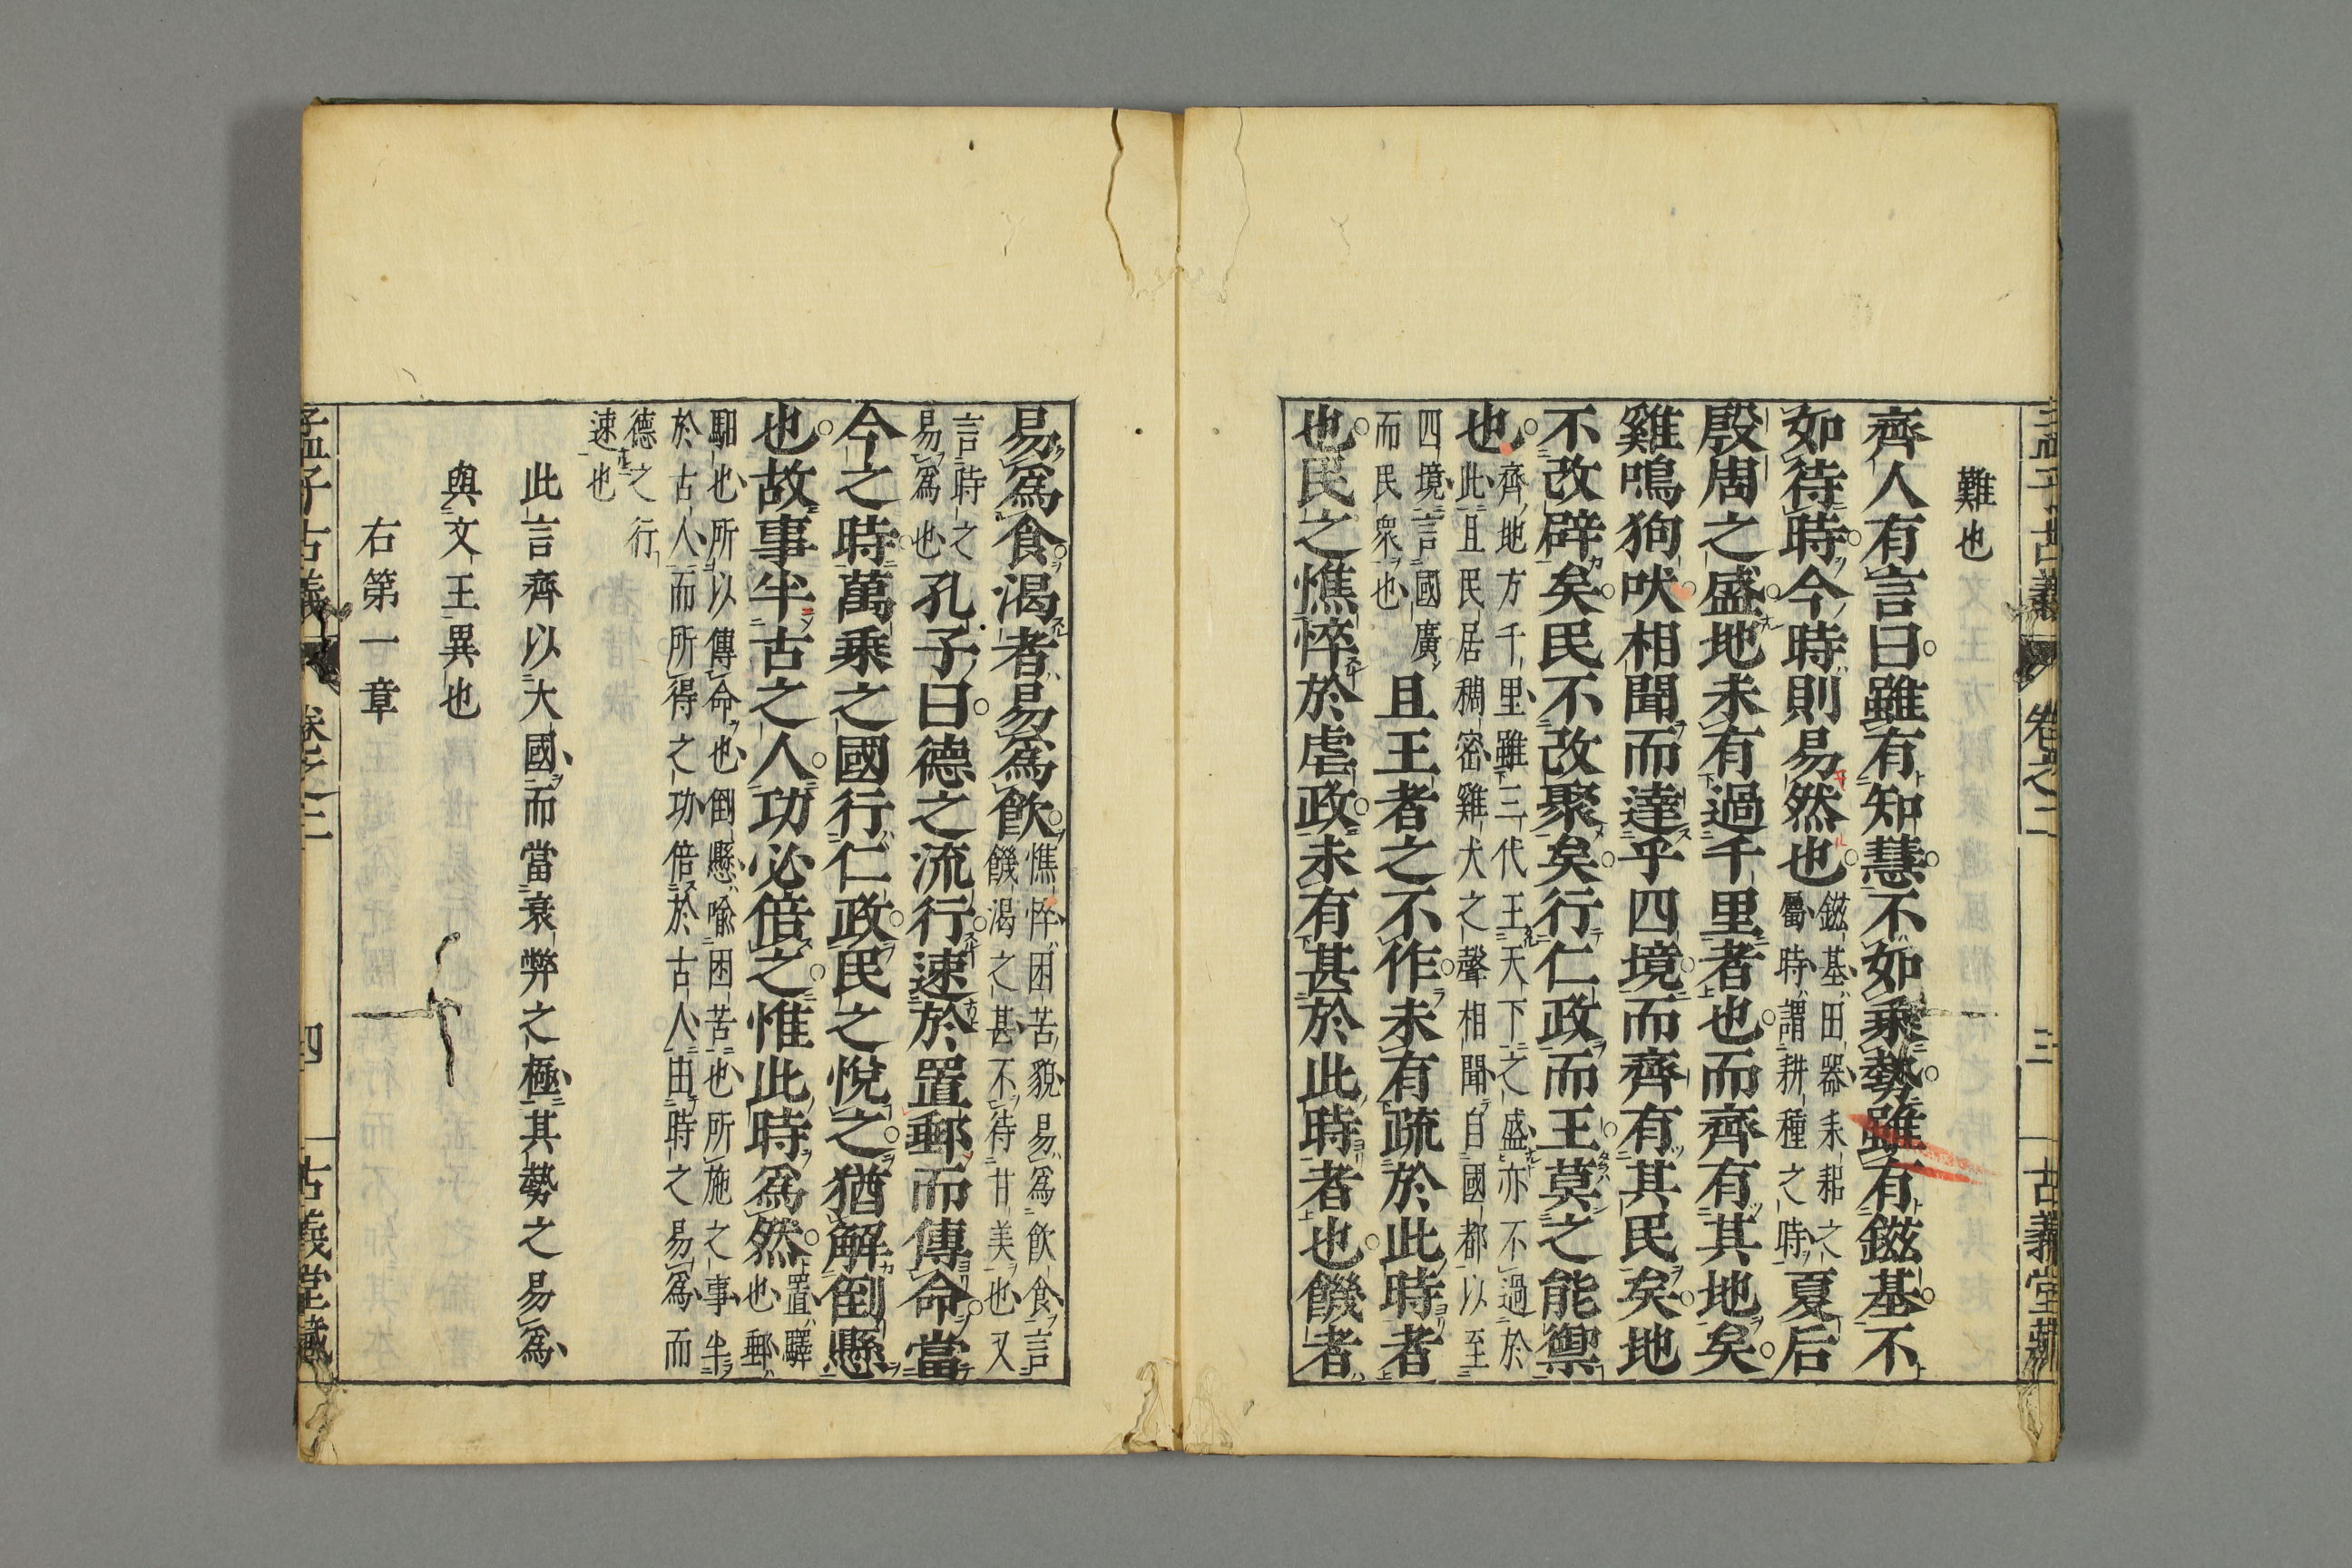 孟子古義 卷之二 三 古義堂藏
難也
齊人有言曰雖有知慧不如乘勢雖有鎡基不
如待時今時則易然也鎡基田器耒耜之
屬時謂耕種之時夏后
殷周之盛地未有過千里者也而齊有其地矣
雞鳴狗吠相聞而達乎四境而齊有其民矣地
不改辟矣民不改聚矣行仁政而王莫之能禦
也齊地方千里雖三代王天下之盛亦不過於
此且民居稠密雞犬之聲相聞自國都以至
四境言國廣
而民衆也且王者之不作未有疏於此時者
也民之憔悴於虐政未有甚於此時者也饑者
易爲食渴者易爲飮憔悴困苦貌易爲飮食言
饑渴之甚不待甘美也又
言時之
易爲也孔子曰德之流行速於置郵而傳命當
今之時萬乘之國行仁政民之悅之猶解倒懸
也故事半古之人功必倍之惟此時爲然置驛
也郵
馹也所以傳命也倒懸喩困苦也所施之事半
於古人而所得之功倍於古人由時之易爲而
德之行
速也
此言齊以大國而當衰弊之極其勢之易爲
與文王異也
右第一章
孟子古義 卷之二 四 古義堂藏